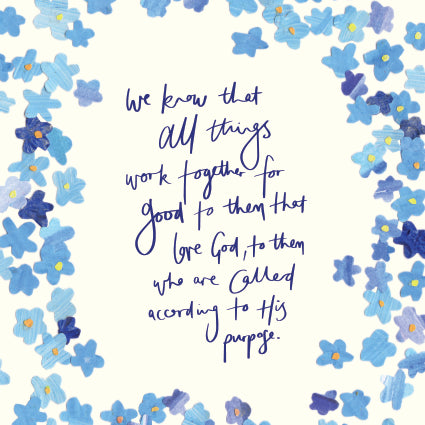 we know that
all things
work together for
good to them that
love God, to them
who are called
according to His
purpose.